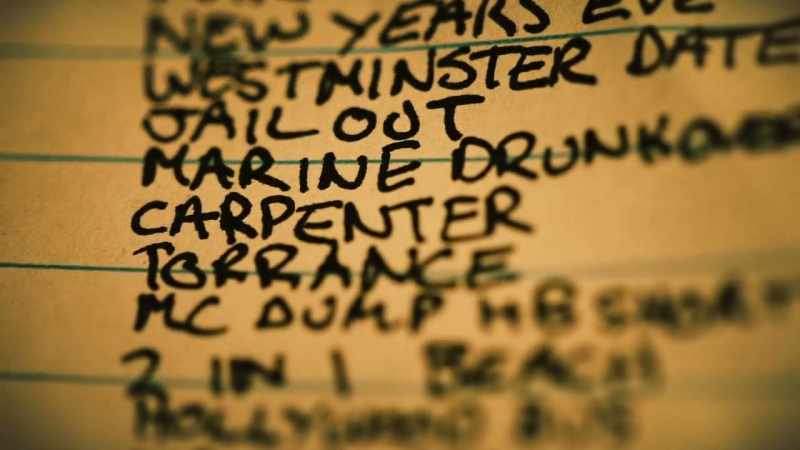 NEW YEARS EVE
WESTMINSTER DATE
JAIL OUT
MARINE DRUNK
CARPENTER
TORRANCE
MC DUMP HB SHORT
2 IN 1 BEACH
HOLLYWOOD